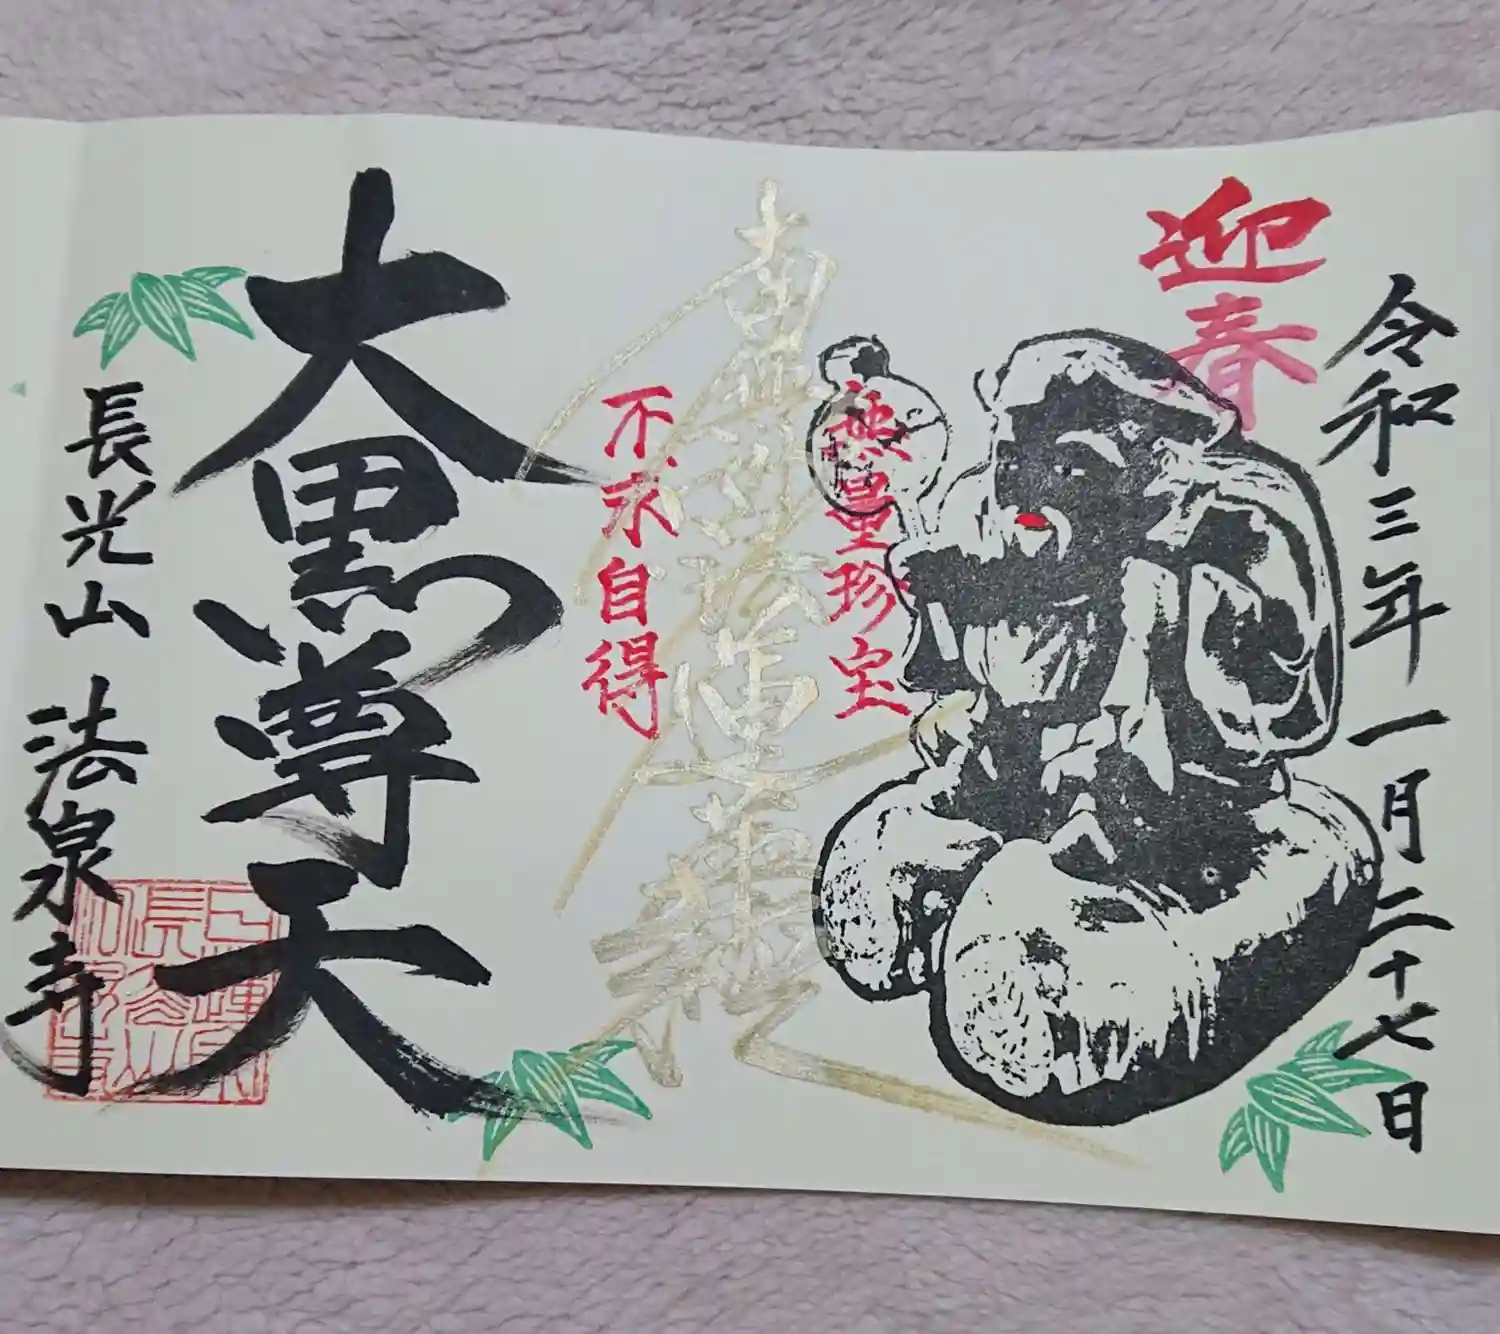 令和三年一月二十七日
迎春
無量珍宝
南無妙法蓮華経
不求自得
大黒尊天
長光山 法泉寺